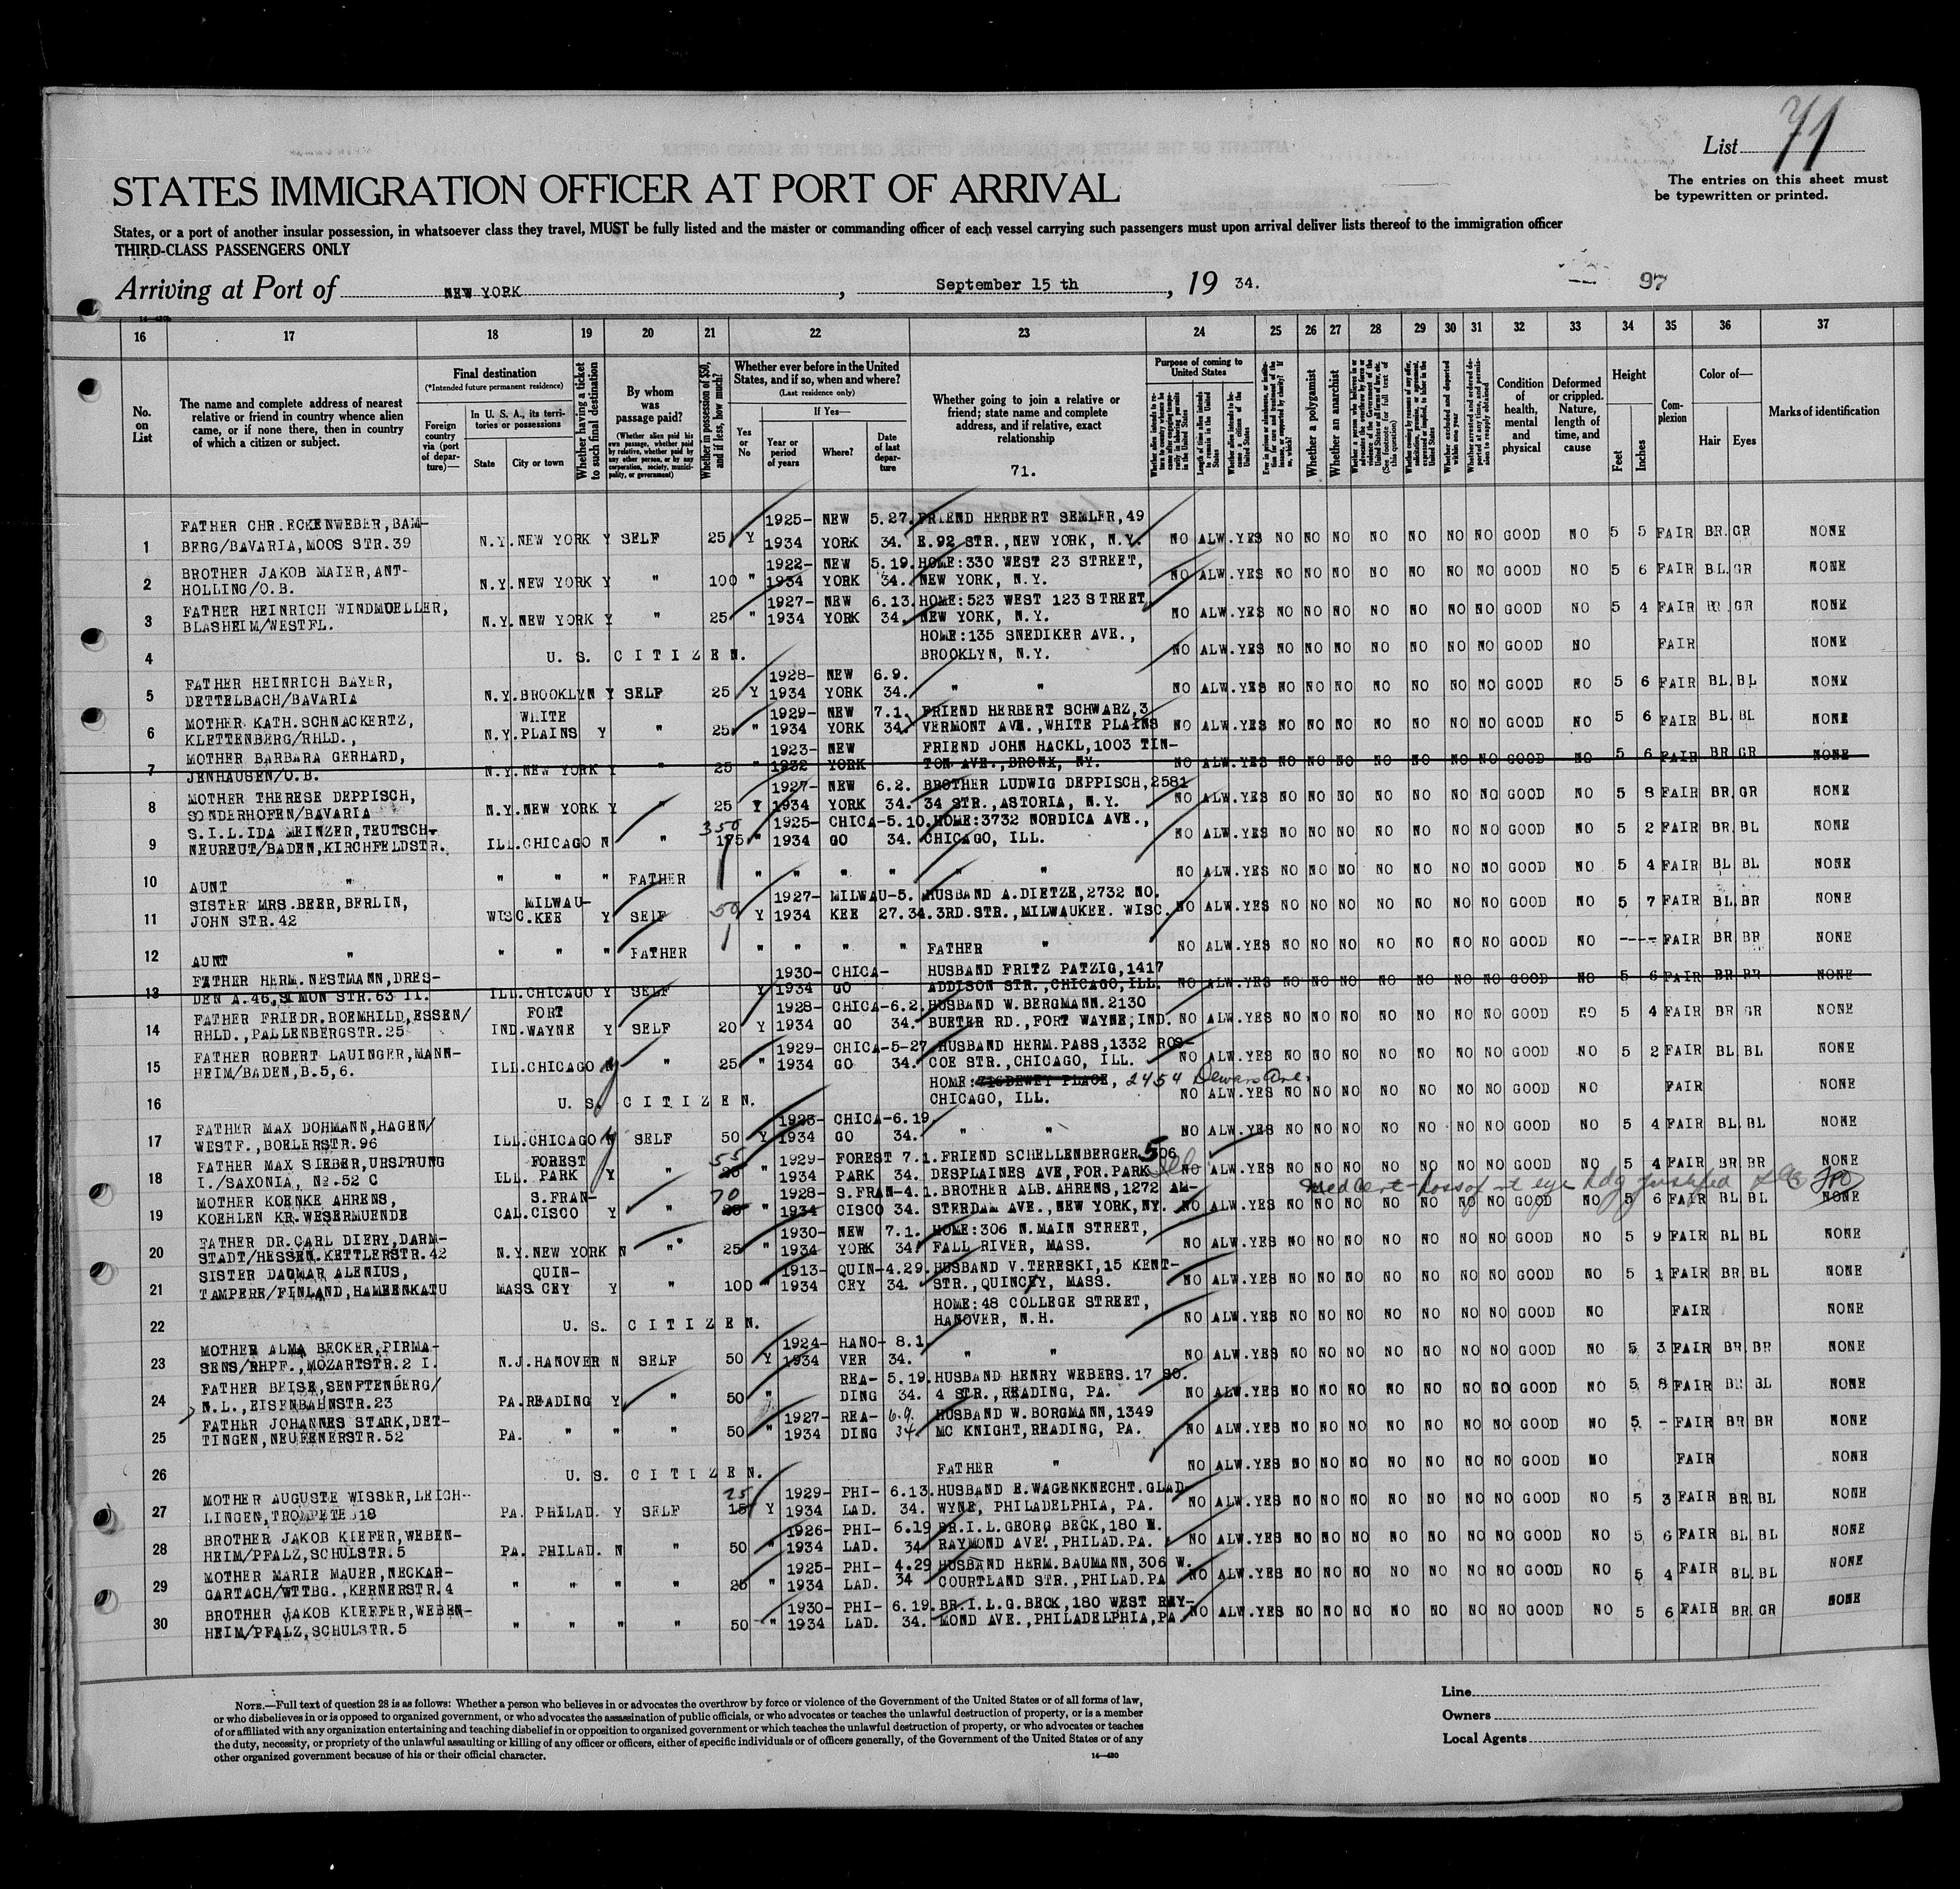 List 71
The entries on this sheet must
be typewritten or printed.
STATES IMMIGRATION OFFICER AT PORT OF ARRIVAL
States, or a port of another insular possession, in whatsoever class they travel, MUST be fully listed and the master or commanding officer of each vessel carrying such passengers must upon arrival deliver lists thereof to the immigration officer
THIRD-CLASS PASSENGERS ONLY
Arriving at Port of NEW YORK, September 15 th, 19 34.
97
16 17 18 19 20 21 22 23 24 25 26 27 28 29 30 31 32 33 34 35 36 37
No. on List
The name and complete address of nearest relative or friend in country whence alien came, or if none there, then in country of which a citizen or subject.
Final destination
(*Intended future permanent residence)
Foreign country via (port of departure)—
In U. S. A., its territories or possessions
State
City or town
Whether having a ticket to such final destination
By whom was passage paid?
(Whether alien paid his own passage, whether paid by relative, whether paid by any other person, or by any corporation, society, municipality, or government)
Whether in possession of $50, and if less, how much?
Whether ever before in the United States, and if so, when and where?
(Last residence only)
Yes or No
If Yes—
Year or period of years
Where?
Date of last departure
Whether going to join a relative or friend; state name and complete address, and if relative, exact relationship
71.
Purpose of coming to United States
Length of time alien intends to remain in the United States
Whether alien intends to become a citizen of the United States
Whether a polygamist
Whether an anarchist
Condition of health, mental and physical
Deformed or crippled. Nature, length of time, and cause
Height
Feet
Inches
Complexion
Color of—
Hair
Eyes
Marks of identification
FATHER CHR.ECKENWEBER,BAM- 1925- NEW 5.27. FRIEND HERBERT SEMLER,49
1 BERG/BAVARIA,MOOS STR.39 N.Y. NEW YORK Y SELF 25 Y 1934 YORK 34. E.92 STR.,NEW YORK, N.Y. NO ALW. YES NO NO NO NO NO NO NO GOOD NO 5 5 FAIR BR. GR NONE
BROTHER JAKOB MAIER,ANT- 1922- NEW 5.19. HOME:330 WEST 23 STREET,
2 HOLLING/O.B. N.Y. NEW YORK Y " 100 " 1934 YORK 34. NEW YORK, N.Y. NO ALW. YES NO NO NO NO NO NO NO GOOD NO 5 6 FAIR BL. GR NONE
FATHER HEINRICH WINDMUELLER, 1927- NEW 6.13. HOME:523 WEST 123 STREET
3 BLASHEIM/WESTFL. N.Y. NEW YORK Y " 25 " 1934 YORK 34. NEW YORK, N.Y. NO ALW. YES NO NO NO NO NO NO NO GOOD NO 5 4 FAIR BR. GR NONE
HOME:135 SNEDIKER AVE.,
4 U. S. CITIZEN. BROOKLYN, N.Y. NO ALW. YES NO NO NO NO NO NO NO GOOD NO FAIR NONE
FATHER HEINRICH BAYER, 1928- NEW 6.9.
5 DETTELBACH/BAVARIA N.Y. BROOKLYN Y SELF 25 Y 1934 YORK 34. " " NO ALW. YES NO NO NO NO NO NO NO GOOD NO 5 6 FAIR BL. BL NONE
MOTHER KATH.SCHNACKERTZ, WHITE 1929- NEW 7.1. FRIEND HERBERT SCHWARZ,3
6 KLETTENBERG/RHLD., N.Y. PLAINS Y " 25 " 1934 YORK 34. VERMONT AVE.,WHITE PLAINS NO ALW. YES NO NO NO NO NO NO NO GOOD NO 5 6 FAIR BL. BL NONE
MOTHER BARBARA GERHARD, 1923- NEW FRIEND JOHN HACKL,1003 TIN-
7 JENHAUSEN/O.B. N.Y. NEW YORK Y " 25 " 1932 YORK TON AVE.,BRONX, NY. NO ALW. YES NO NO NO NO NO NO NO GOOD NO 5 6 FAIR BR GR NONE
MOTHER THERESE DEPPISCH, 1927- NEW 6.2. BROTHER LUDWIG DEPPISCH,2581
8 SONDERHOFEN/BAVARIA N.Y. NEW YORK Y " 25 Y 1934 YORK 34. 34 STR.,ASTORIA, N.Y. NO ALW. YES NO NO NO NO NO NO NO GOOD NO 5 8 FAIR BR. GR NONE
S.I.L.IDA MEINZER,TEUTSCH- 350 1925- CHICA- 5.10. HOME:3732 NORDICA AVE.,
9 NEUREUT/BADEN,KIRCHFELDSTR. ILL. CHICAGO N " 175 " 1934 GO 34. CHICAGO, ILL. NO ALW. YES NO NO NO NO NO NO NO GOOD NO 5 2 FAIR BR. BL NONE
10 AUNT " " " " FATHER " " " " " " NO ALW. YES NO NO NO NO NO NO NO GOOD NO 5 4 FAIR BL BL NONE
SISTER MRS.BEER,BERLIN, MILWAU- 1927- MILWAU- 5. HUSBAND A.DIETZE,2732 NO.
11 JOHN STR.42 WISC. KEE Y SELF 50 Y 1934 KEE 27.34. 3RD.STR.,MILWAUKEE. WISC. NO ALW. YES NO NO NO NO NO NO NO GOOD NO 5 7 FAIR BL. BR NONE
12 AUNT " " " " FATHER " " " " FATHER " NO ALW. YES NO NO NO NO NO NO NO GOOD NO ---- FAIR BR BR NONE
FATHER HERM.NESTMANN,DRES- 1930- CHICA- HUSBAND FRITZ PATZIG,1417
13 DEN A.46,SIMON STR.63 II. ILL. CHICAGO Y SELF Y 1934 GO ADDISON STR.,CHICAGO,ILL. NO ALW. YES NO NO NO NO NO NO NO GOOD NO 5 6 FAIR BR BR NONE
FATHER FRIEDR.ROEMHILD,ESSEN/ FORT 1928- CHICA- 6.2. HUSBAND W.BERGMANN.2130
14 RHLD.,PALLENBERGSTR.25 IND. WAYNE Y SELF 20 Y 1934 GO 34. BUETER RD.,FORT WAYNE,IND. NO ALW. YES NO NO NO NO NO NO NO GOOD NO 5 4 FAIR BR GR NONE
FATHER ROBERT LAUINGER,MANN- 1929- CHICA- 5-27. HUSBAND HERM.PASS,1332 ROS-
15 HEIM/BADEN,B.5,6. ILL. CHICAGO " 25 " 1934 GO 34. COE STR.,CHICAGO, ILL. NO ALW. YES NO NO NO NO NO NO NO GOOD NO 5 2 FAIR BL. BL NONE
HOME: DEWEY PLACE, 2454
16 U. S. CITIZEN. CHICAGO, ILL. NO ALW. YES NO NO NO NO NO NO NO GOOD NO FAIR NONE
FATHER MAX DOHMANN,HAGEN/ CHICA- 6.19.
17 WESTF.,BOELERSTR.96 ILL. CHICAGO SELF 50 Y 1934 GO 34. " " NO ALW. YES NO NO NO NO NO NO NO GOOD NO 5 4 FAIR BL. BL NONE
FATHER MAX SIEBER,URSPRUNG FOREST 55 1929- FOREST 7.1. FRIEND SCHELLENBERGER, 506
18 I./SAXONIA, No.52 C ILL. PARK Y " " 1934 PARK 34. DESPLAINES AVE,FOR.PARK NO ALW. YES NO NO NO NO NO NO NO GOOD NO 5 4 FAIR BR. BR NONE
Med Cert - Loss of rt eye hdg justified
MOTHER KOENKE AHRENS, S.FRAN- 70 1928- S.FRAN- 4.1. BROTHER ALB.AHRENS,1272 AM-
19 KOEHLEN KR.WESERMUENDE CAL. CISCO Y " " 1934 CISCO 34. STERDAM AVE.,NEW YORK,NY. NO ALW. YES NO NO NO NO NO NO NO GOOD NO 5 6 FAIR BL BL NONE
FATHER DR.CARL DIERY,DARM- 1930- NEW 7.1. HOME:306 N.MAIN STREET,
20 STADT/HESSEN.KETTLERSTR.42 N.Y. NEW YORK N " 25 " 1934 YORK 34. FALL RIVER, MASS. NO ALW. YES NO NO NO NO NO NO NO GOOD NO 5 9 FAIR BL BL NONE
SISTER DAGMAR ALENIUS, QUIN- 1913- QUIN- 4.29. HUSBAND V.TERESKI,15 KENT-
21 TAMPERE/FINLAND,HAMEENKATU MASS. CEY Y " 100 " 1934 CEY 34. STR.,QUINCEY, MASS. NO ALW. YES NO NO NO NO NO NO NO GOOD NO 5 1 FAIR BR. BL NONE
HOME:48 COLLEGE STREET,
22 U. S. CITIZEN. HANOVER, N.H. NO ALW. YES NO NO NO NO NO NO NO GOOD NO FAIR NONE
MOTHER ALMA BECKER,PIRMA- 1924- HANO- 8.1.
23 SENS/RHPF.,MOZARTSTR.2 I. N.J. HANOVER N SELF 50 Y 1934 VER 34. " " NO ALW. YES NO NO NO NO NO NO NO GOOD NO 5 3 FAIR BR. BR NONE
FATHER BEISE,SENFTENBERG/ REA- 5.19. HUSBAND HENRY WEBERS.17 SO.
24 N.L.,EISENBAHNSTR.23 PA. READING Y " 50 " DING 34. 4 STR.,READING, PA. NO ALW. YES NO NO NO NO NO NO NO GOOD NO 5 8 FAIR BR BL NONE
FATHER JOHANNES STARK,DET- 1927- REA- 6.9. HUSBAND W.BORGMANN,1349
25 TINGEN,NEUFENERSTR.52 PA. " " " 50 " 1934 DING 34. MC KNIGHT,READING, PA. NO ALW. YES NO NO NO NO NO NO NO GOOD NO 5 - FAIR BR BR NONE
26 U. S. CITIZEN. FATHER " NO ALW. YES NO NO NO NO NO NO NO GOOD NO FAIR NONE
MOTHER AUGUSTE WISSER,LEICH- 25 1929- PHI- 6.13. HUSBAND E.WAGENKNECHT.GLAD-
27 LINGEN,TROMPETE 18 PA. PHILAD. Y SELF 15 Y 1934 LAD. 34. WYNE, PHILADELPHIA, PA. NO ALW. YES NO NO NO NO NO NO NO GOOD NO 5 3 FAIR BR. BL NONE
BROTHER JAKOB KIEFER,WEBEN- 1926- PHI- 6.19 BR.I.L.GEORG BECK,180 W.
28 HEIM/PFALZ,SCHULSTR.5 PA. PHILAD. N " 50 " 1934 LAD. 34 RAYMOND AVE.,PHILAD.PA. NO ALW. YES NO NO NO NO NO NO NO GOOD NO 5 6 FAIR BL. BL NONE
MOTHER MARIE MAUER,NECKAR- 1925- PHI- 4.29 HUSBAND HERM.BAUMANN,306 W.
29 GARTACH/WTTBG.,KERNERSTR.4 " " " " 25 " 1934 LAD. 34 COURTLAND STR.,PHILAD.PA NO ALW. YES NO NO NO NO NO NO NO GOOD NO 5 4 FAIR BL. BL NONE
BROTHER JAKOB KIEFFER,WEBEN- 1930- PHI- 6.19. BR.I.L.G.BECK,180 WEST RAY-
30 HEIM/PFALZ,SCHULSTR.5 " " " " 50 " 1934 LAD. 34. MOND AVE.,PHILADELPHIA,PA. NO ALW. YES NO NO NO NO NO NO NO GOOD NO 5 6 FAIR BR. GR NONE
NOTE.—Full text of question 28 is as follows: Whether a person who believes in or advocates the overthrow by force or violence of the Government of the United States or of all forms of law,
or who disbelieves in or is opposed to organized government, or who advocates the assassination of public officials, or who advocates or teaches the unlawful destruction of property, or is a member
of or affiliated with any organization entertaining and teaching disbelief in or opposition to organized government or which teaches the unlawful destruction of property, or who advocates or teaches
the duty, necessity, or propriety of the unlawful assaulting or killing of any officer or officers, either of specific individuals or of officers generally, of the Government of the United States or of any
other organized government because of his or their official character.
14—430
Line
Owners
Local Agents